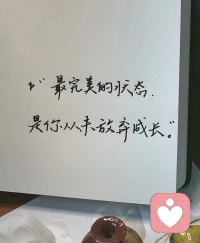 “最完美的状态.
是你从未放弃成长”。